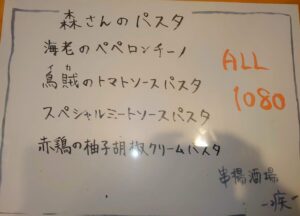 森さんのパスタ
海老のペペロンチーノ
イカ
烏賊のトマトソースパスタ
スペシャルミートソースパスタ
赤鶏の柚子胡椒クリームパスタ
ALL
1080
串揚酒場